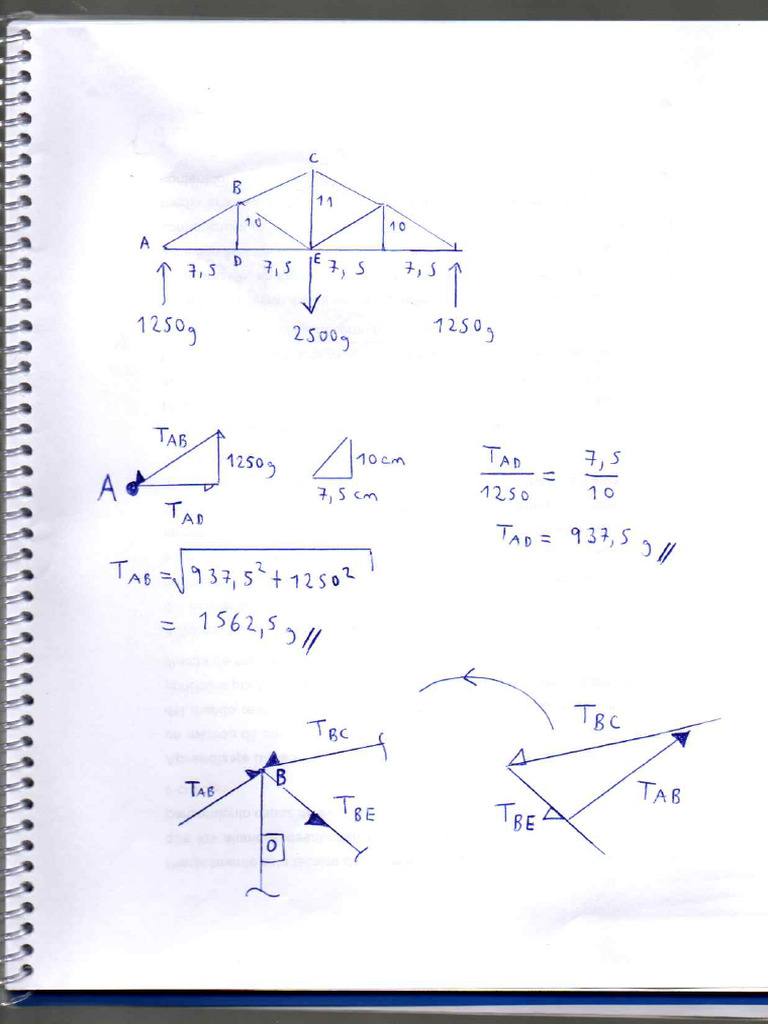 C
B
11
10
10
A
D
E
7,5
7,5
7,5
7,5
1250g
2500g
1250g
T_AB
1250g
A
T_AD
10cm
7,5cm
T_AD / 1250 = 7,5 / 10
T_AD = 937,5 g //
T_AB = √(937,5² + 1250²)
= 1562,5 g //
T_BC
T_AB
B
T_BE
0
T_BC
T_AB
T_BE